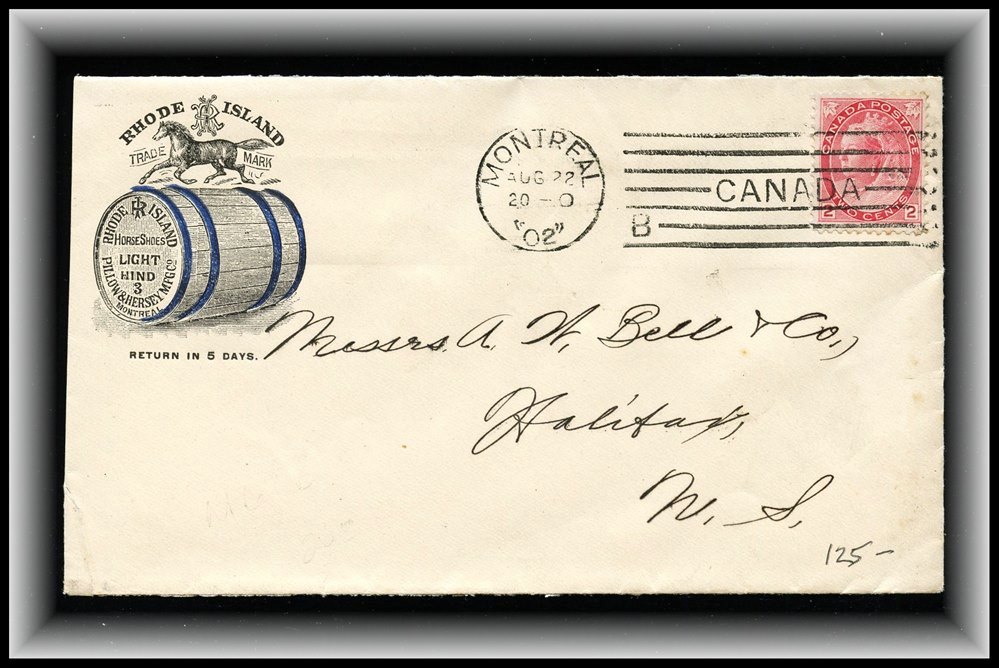 RHODE ISLAND
TRADE MARK
RHODE ISLAND
HORSE SHOES
LIGHT
HIND
3
PILLOW & HERSEY MFG CO
MONTREAL
RETURN IN 5 DAYS.
MONTREAL
AUG 22
20 - 0
"02"
CANADA
B
CANADA POSTAGE
TWO CENTS
2 2
Messrs. A. W. Bell & Co.,
Halifax,
N. S.
125-